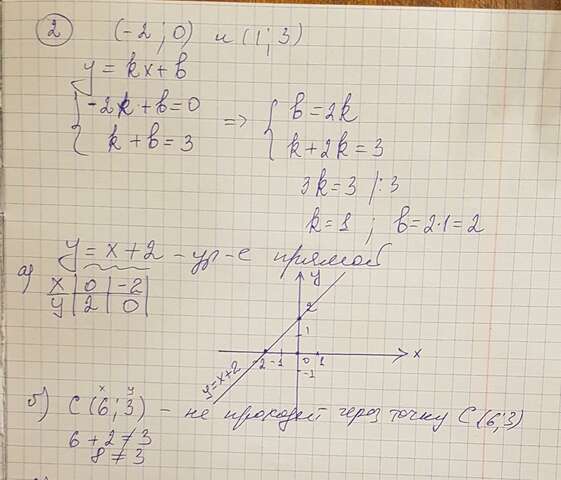 2 (-2; 0) и (1; 3)
y = kx + b
{ -2k + b = 0 => { b = 2k
k + b = 3 k + 2k = 3
3k = 3 /:3
k = 1 ; b = 2·1 = 2
y = x + 2 - ур-е прямой
а) x | 0 | -2 |
y | 2 | 0 |
y
2
1
-2 -1 0 1 x
-1
y = x+2
x y
б) C (6; 3) - не проходит через точку C (6; 3)
6 + 2 ≠ 3
8 ≠ 3